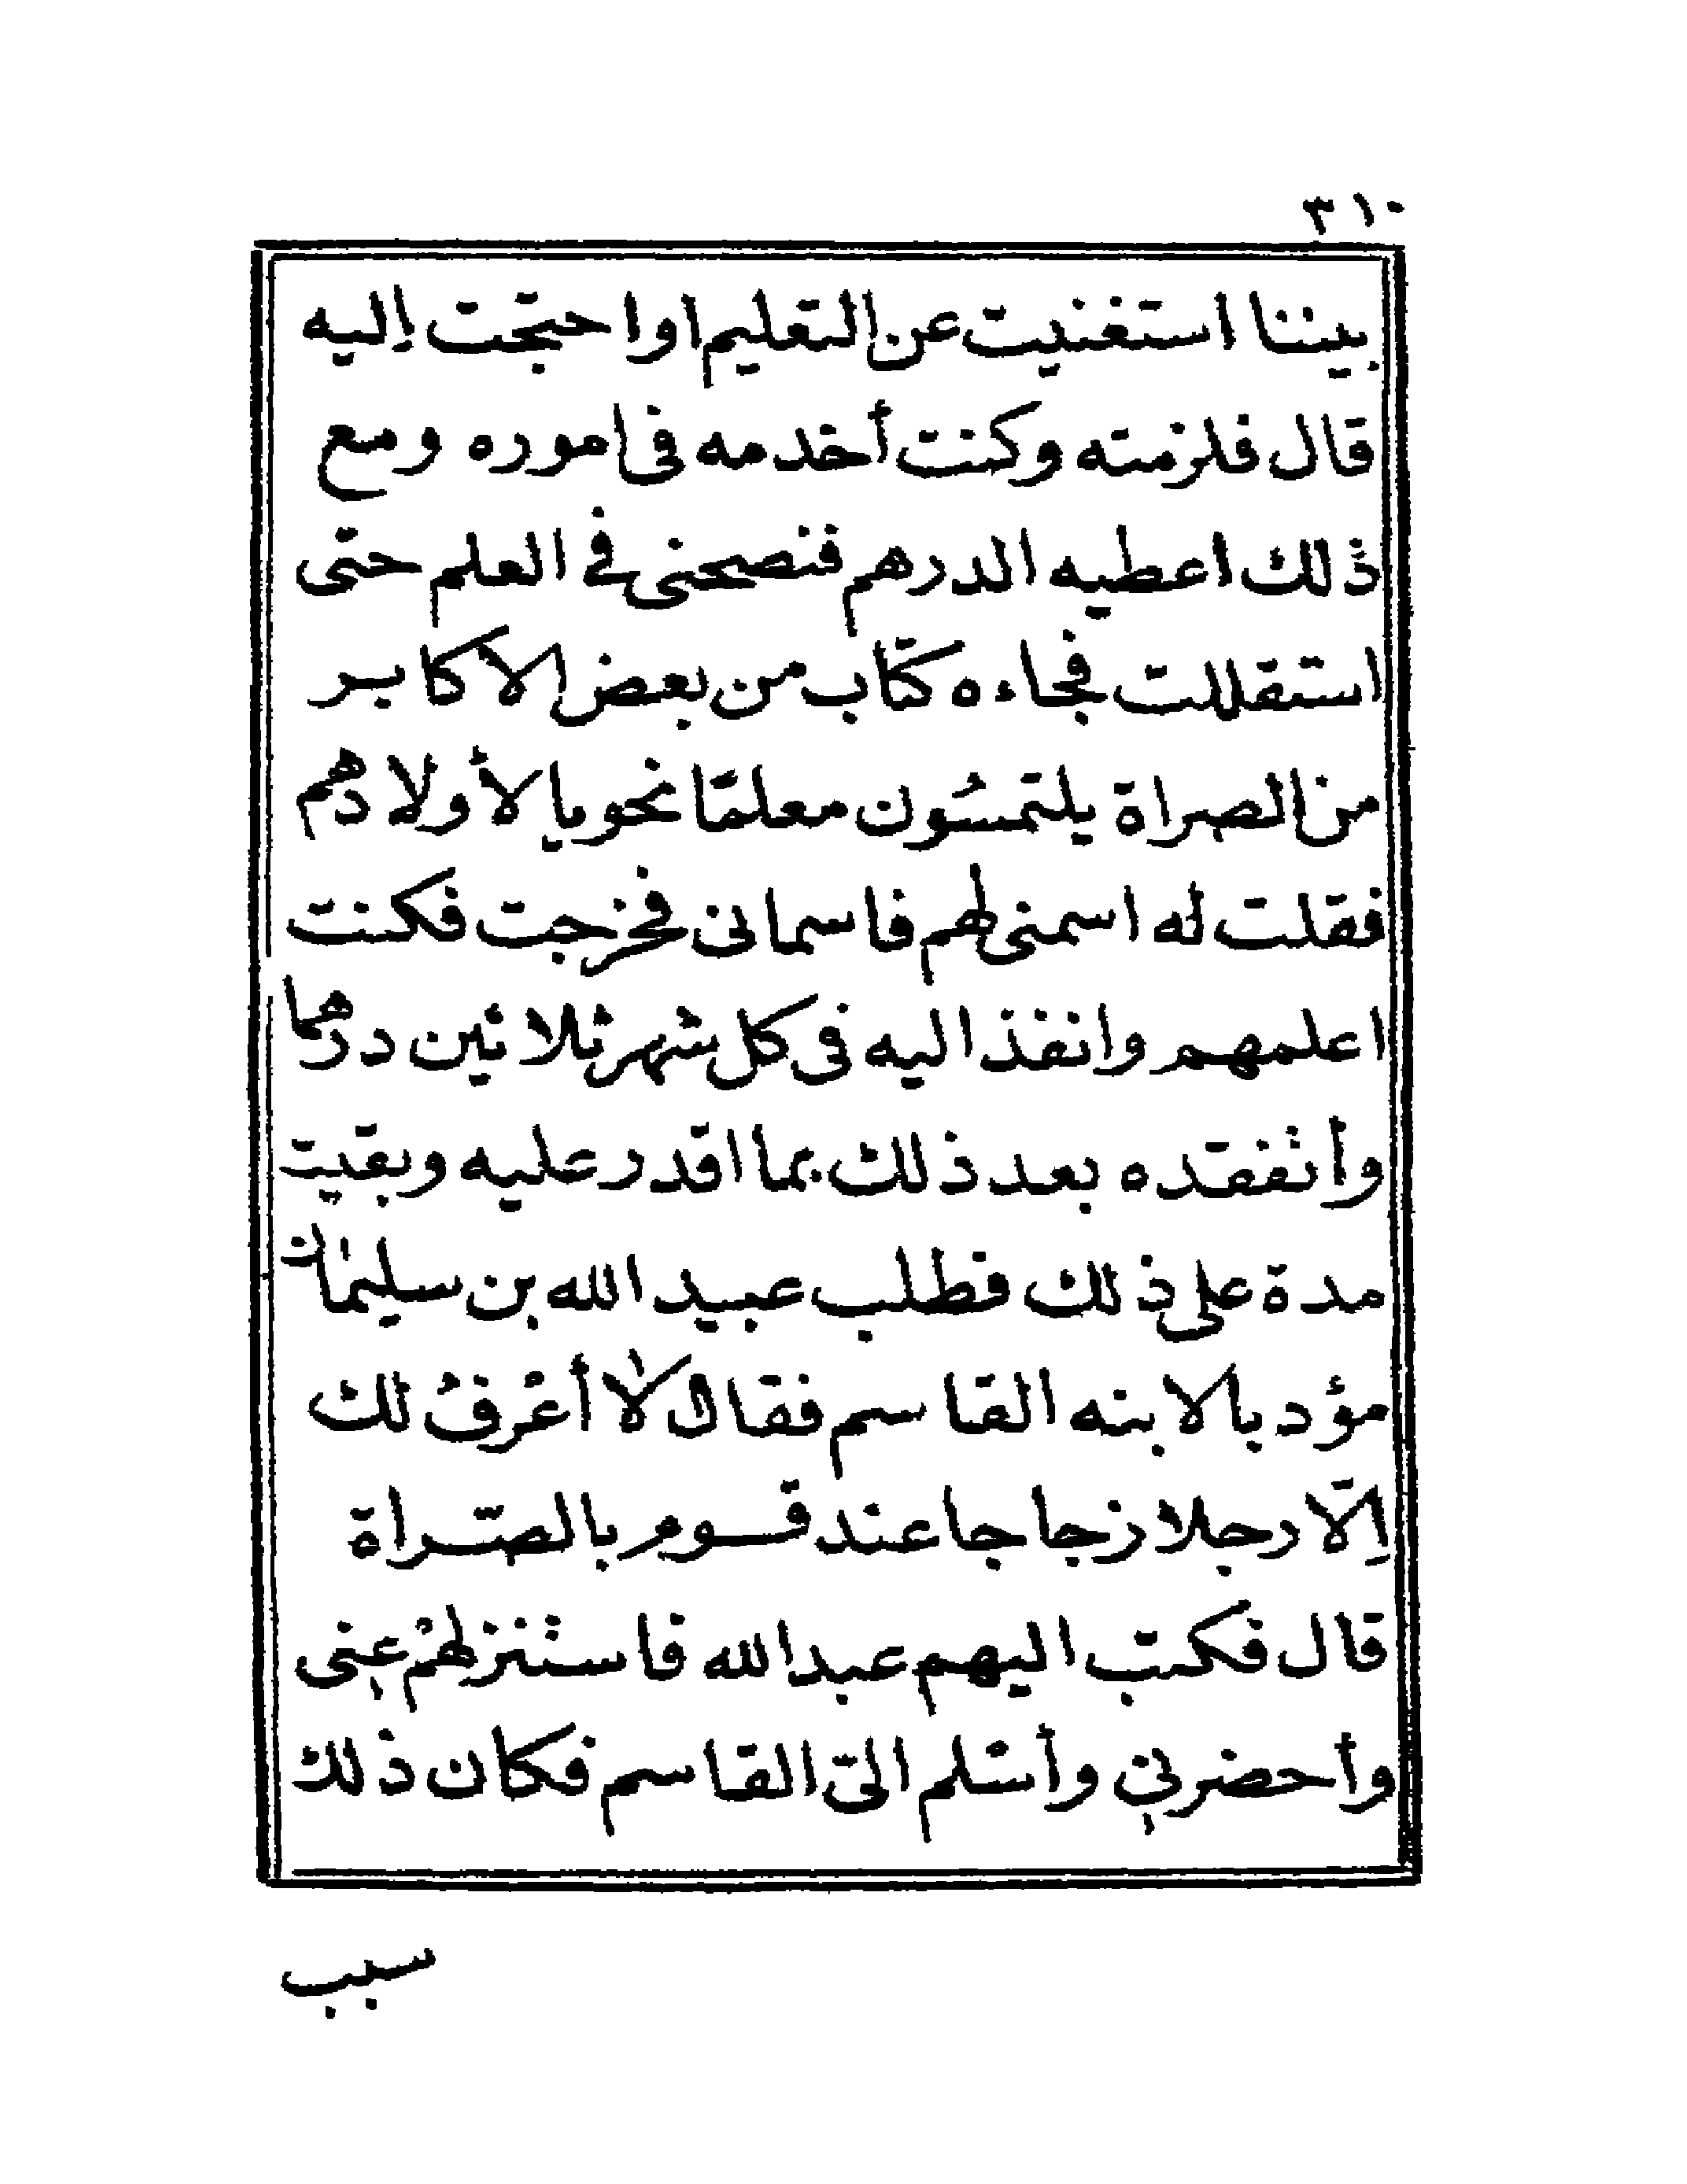 ٣١٠
بيننا استغنيت عن التعليم او احتجت إليه
قال فلزمته وكنت أخدمه فى اموره ومع
ذلك اعطيه الدرهم فنصحنى فى العلم حتى
استقللت فجاءه كتاب من بعض الاكابر
من الصراة يلتمسون معلمًا نحويا لأولادهم
فقلت له اسمنى لهم فاسمانى فخرجت فكنت
اعلمهم وانفذ اليه فى كل شهر ثلاثين درهما
وأتفقده بعد ذلك بما اقدر عليه وبقيت
مدة على ذلك فطلب عبيد الله بن سليمان
مؤدبا لابنه القاسم فقال لا أعْرفُ لك
إلّا رجلا زجاجا عند قوم بالصّراة
قال فكتب اليهم عبد الله فاستنزلهمْ عنى
وأحضرني وأسْلم الىّ القاسم فكان ذلك
سبب